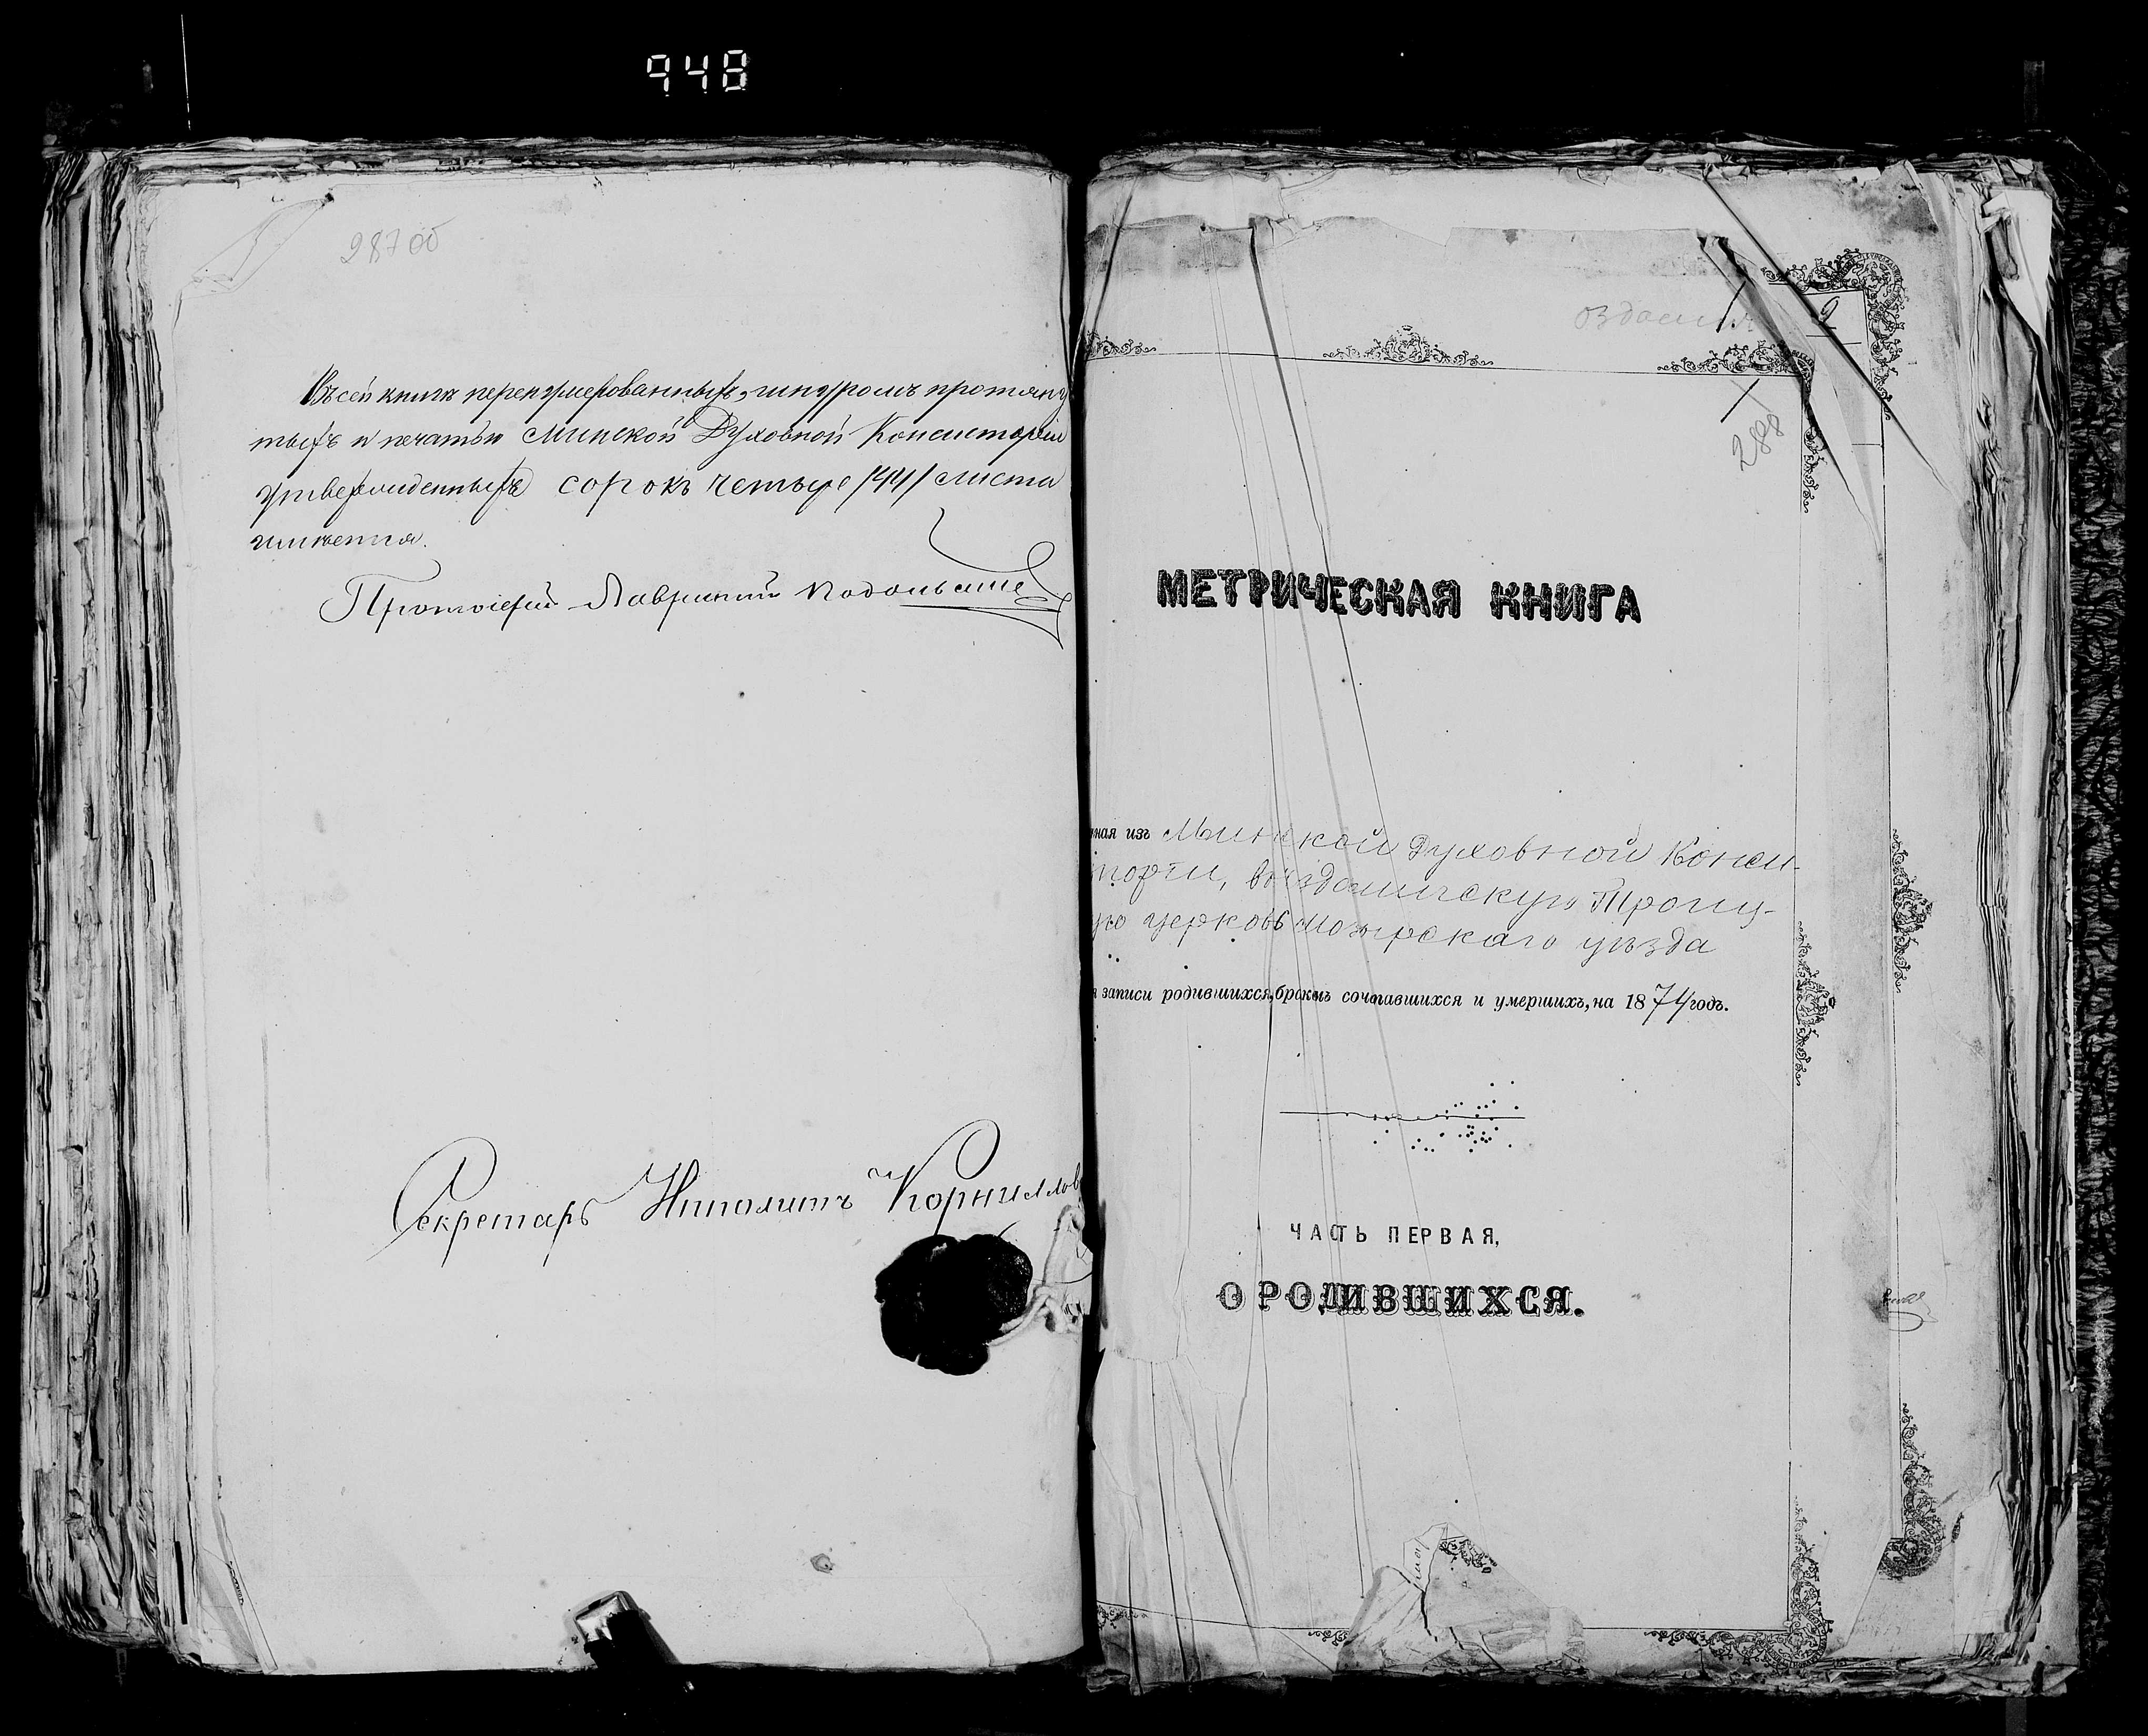 948
287 об
Въ сей книгѣ перенумерованныхъ, шнуромъ протяну
тыхъ и печатью Минской Духовной Консисторіи
утвержденныхъ сорокъ четыре /44/ листа
Протоіерей
Секретарь Ипполитъ Корнилов
2
288
МЕТРИЧЕСКАЯ КНИГА
ная изъ Минской Духовной Конси-
торіи, въ здамичскую Троиц-
ую церковь Мозырскаго уѣзда
я записи родившихся, бракомъ сочетавшихся и умершихъ, на 1874 годъ.
ЧАСТЬ ПЕРВАЯ,
О РОДИВШИХСЯ.